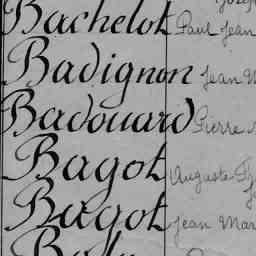 Bachelot Paul Jean
Badignon Jean
Badouard Pierre
Bagot Auguste
Bagot Jean Mar